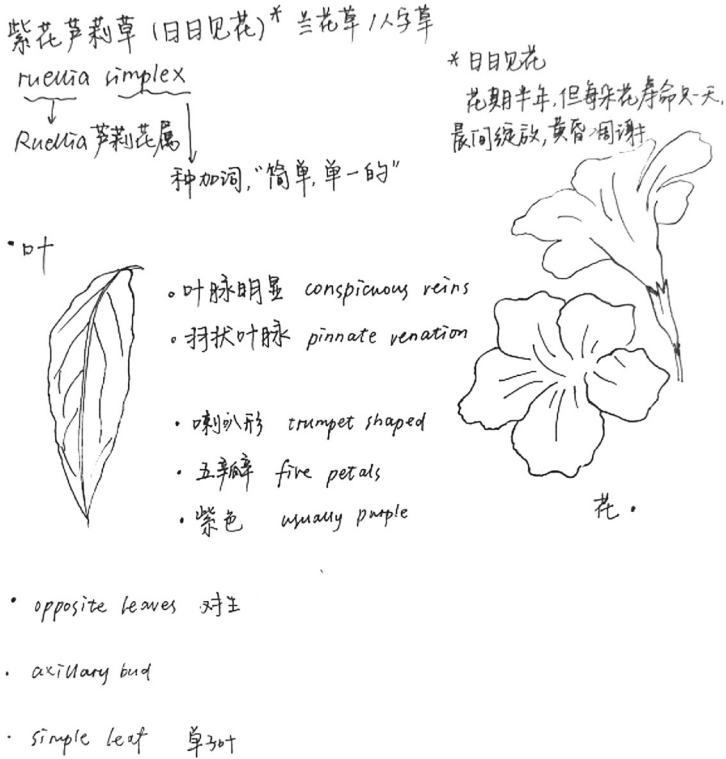 紫花芦莉草（日日见花）* 兰花草/人字草
ruellia simplex
Ruellia芦莉花属
种加词，“简单，单一的”
*日日见花
花期半年，但每朵花寿命只一天，
晨间绽放，黄昏凋谢
·叶
·叶脉明显 conspicuous veins
·羽状叶脉 pinnate venation
·喇叭形 trumpet shaped
·五瓣 five petals
·紫色 usually purple
花·
·opposite leaves 对生
·axillary bud
·simple leaf 单叶